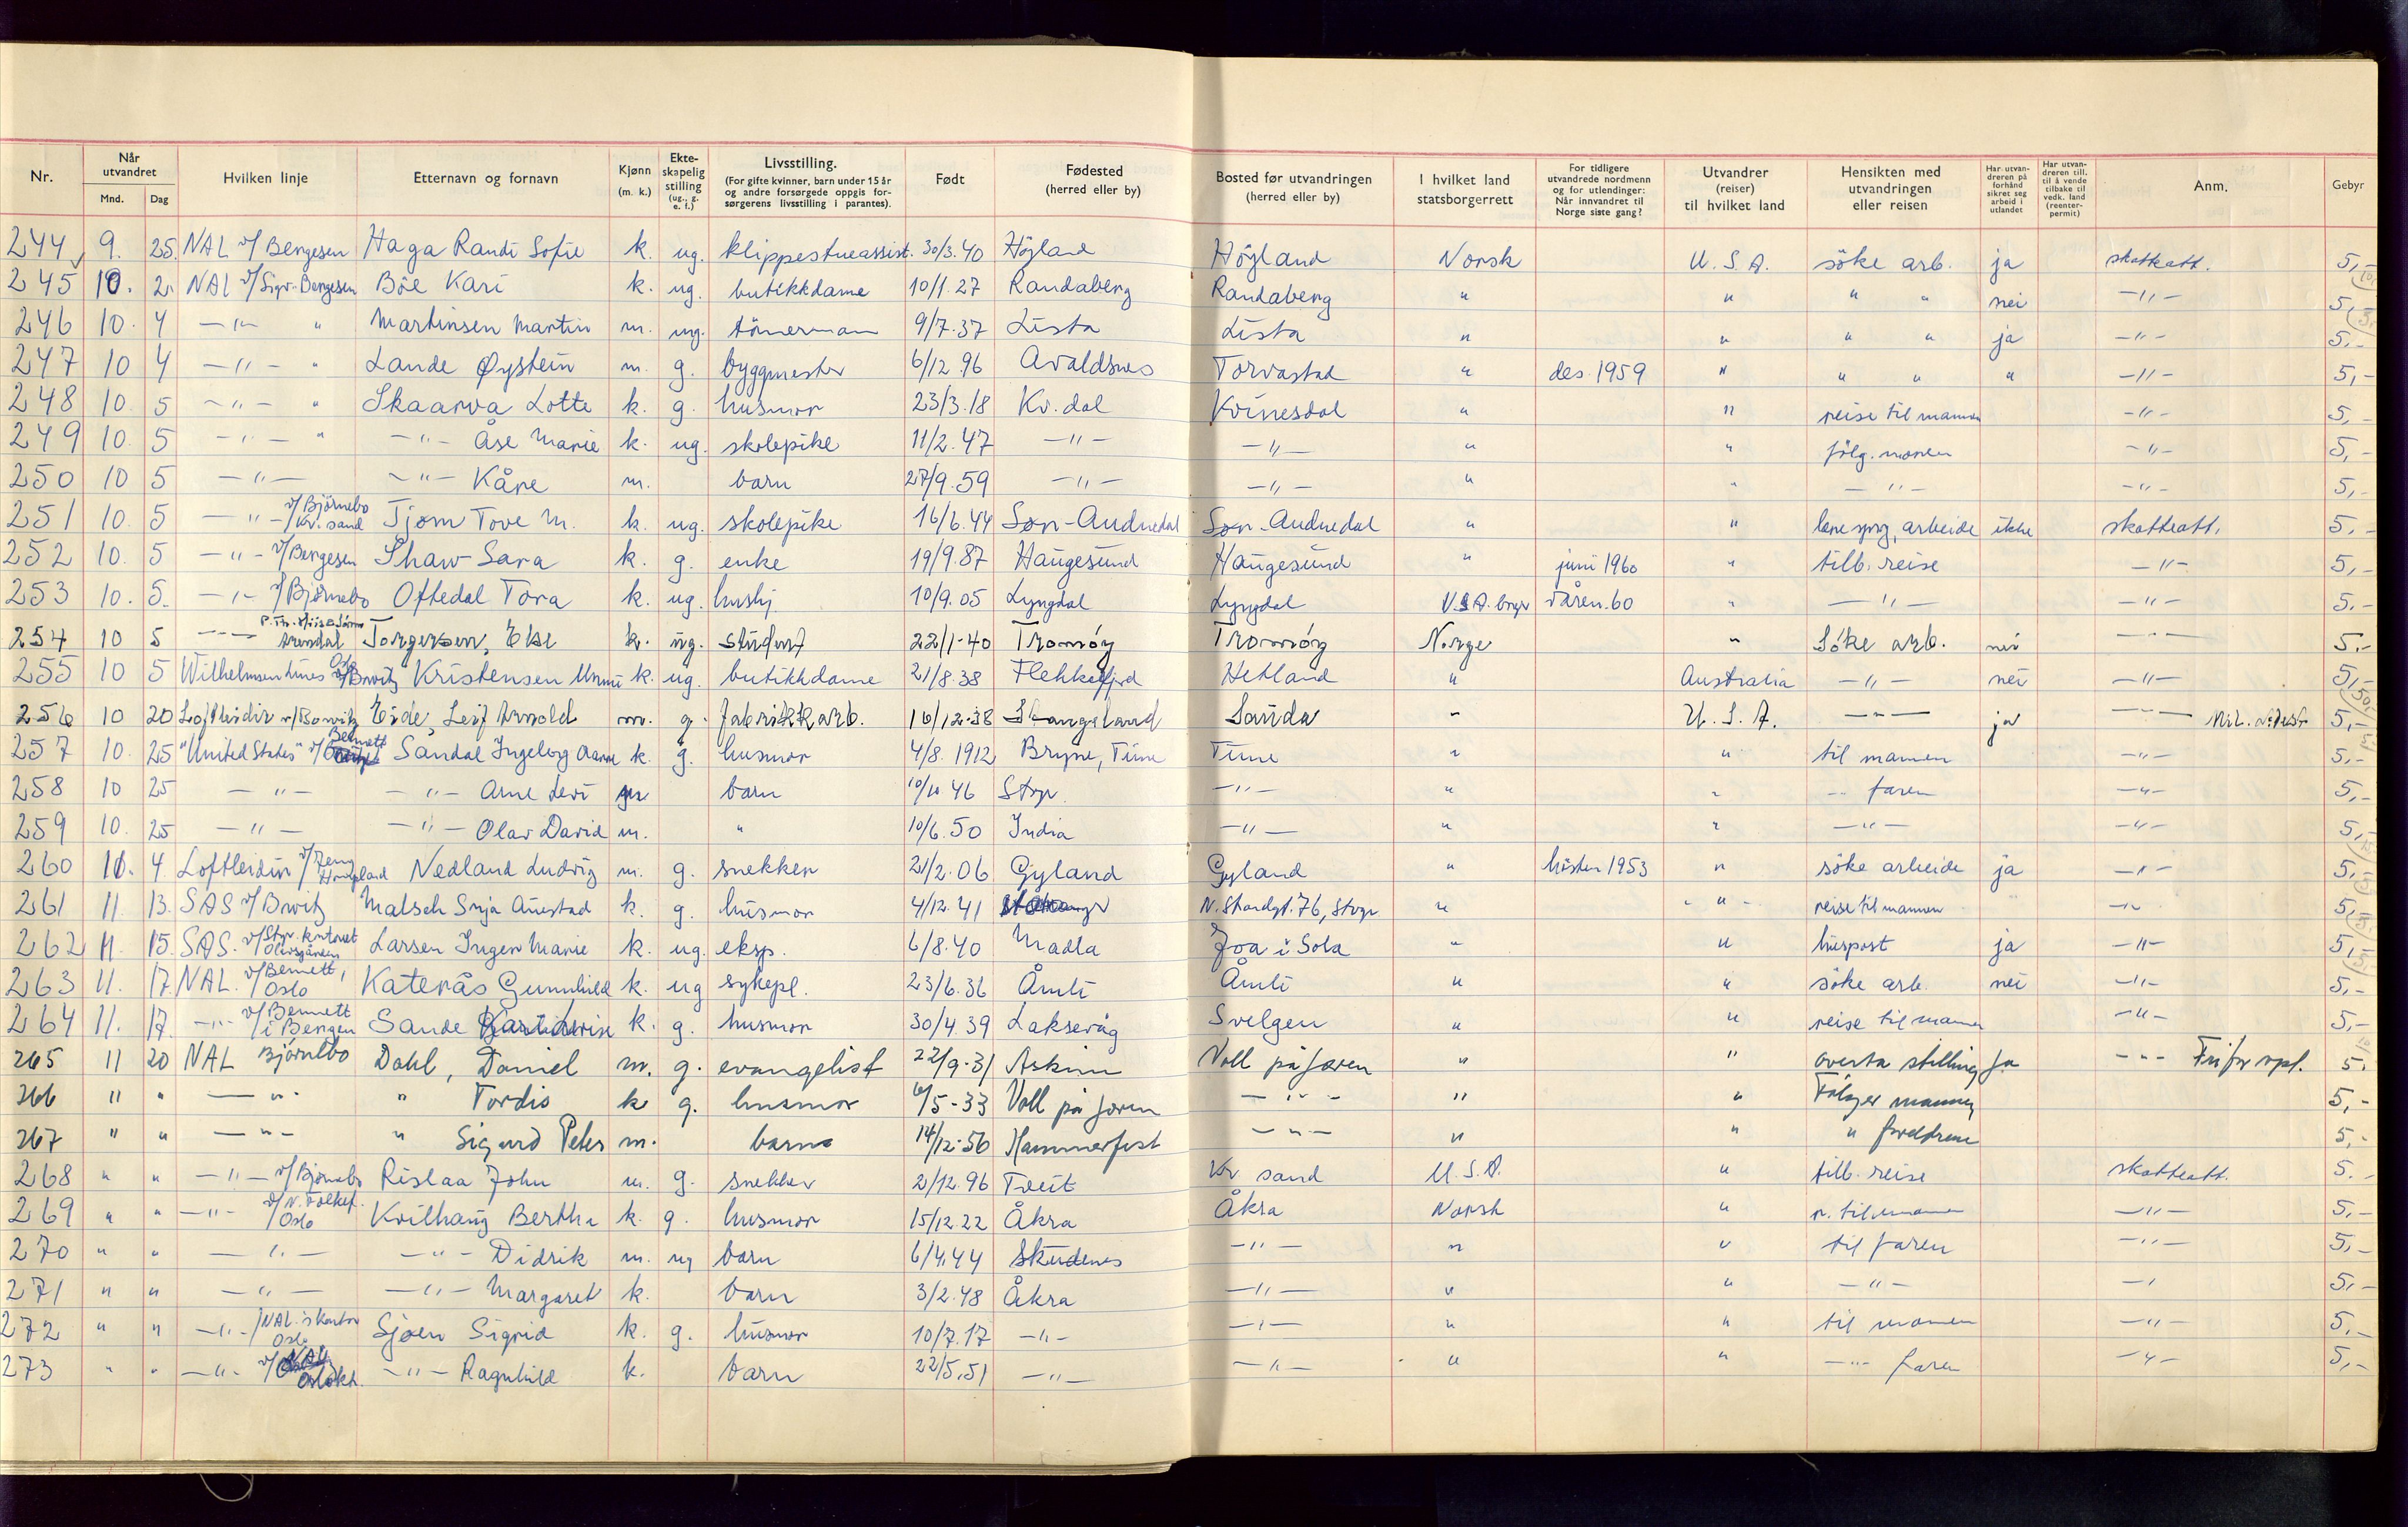 Nr. Når utvandret Mnd. Dag Hvilken linje Etternavn og fornavn Kjønn (m. k.) Ekteskapelig stilling (ug., g. e. f.) Livsstilling. (For gifte kvinner, barn under 15 år og andre forsørgede oppgis forsørgerens livsstilling i parantes). Født Fødested (herred eller by) Bosted før utvandringen (herred eller by) I hvilket land statsborgerrett For tidligere utvandrede nordmenn og for utlendinger: Når innvandret til Norge siste gang? Utvandrer (reiser) til hvilket land Hensikten med utvandringen eller reisen Har utvandreren på forhånd sikret seg arbeid i utlandet Har utvandreren till. til å vende tilbake til vedk. land (reenterpermit) Anm. Gebyr
244 9. 25. NAL v/ Bergesen Haga Randi Sofie k. ug. klippestueassist. 30/3.40 Höyland Höyland Norsk U.S.A. söke arb. ja skatteatt. 5,-
245 10. 2. NAL v/ Sigv. Bergesen Böe Kari k. ug. butikkdame 10/1.27 Randaberg Randaberg " " " " nei -"- 5,-
246 10. 4 -"- " Martinsen Martin m. ug. tömerman 9/7.37 Lista Lista " " " " ja -"- 5,-
247 10 4 -"- " Lande Øystein m. g. byggmester 6/12.96 Avaldsnes Torvastad " des. 1959 " " " " -"- 5,-
248 10. 5 -"- " Skaarva Lotte k. g. husmor 23/3.18 Kv.dal Kvinesdal " " reise til mannen -"- 5,-
249 10. 5 -"- " -"- Åse Marie k. ug. skolepike 11/2.47 -"- -"- " " fölg. moren -"- 5,-
250 10 5 -"- -"- Kåre m. barn 27/9.59 -"- -"- " " -"- -"- 5,-
251 10. 5 -"- v/ Björnebo /Kr.sand Tjom Tove M. k. ug. skolepike 16/6.44 Sør-Audnedal Sør-Audnedal " " lære sprg, arbeide ikke skatteatt. 5,-
252 10. 5 -"- v/ Bergesen Shaw Sara k. g. enke 19/9.87 Haugesund Haugesund " juni 1960 " tilb. reise -"- 5,-
253 10. 5. -"- v/ Björnebo Oftedal Tora k. ug. hushj 10/9.05 Lyngdal Lyngdal U.S.A. brgr våren.60 " -"- -"- 5.-
254 10 5 -"- Arendal Torgersen, Else k. ug. student 22/1-40 Tromöy Tromöy Norge " Söke arb. nei -"- 5,-
255 10 5 Wilhelmsen Lines Kristensen Unni k. ug. butikkdame 21/8.38 Flekkefjord Hetland " Australia -"- nei -"- 5,-
256 10 20 Loftleidir Eide, Leif Arnold m. g. fabrikkarb. 16/12-38 Sauda " U.S.A. -"- ja -"- 5,-
257 10. 25 "United States" v/ Bennett Sandal Ingeborg k. g. husmor 4/8.1912 Bryne, Time Time " " til mannen -"- 5,-
258 10 25 -"- -"- Arne Levi m barn 10/10 46 Stvgr. -"- " " -"- faren -"- 5,-
259 10. 25 -"- -"- Olav David m. " 10/6.50 India -"- " " -"- -"- 5,-
260 10. 4 Loftleidir v/ Nedland Ludvig m. g. snekker 21/2.06 Gyland Gyland " hösten 1953 " söke arbeide ja -"- 5,-
261 11 13. SAS v/ Malsch k. g. husmor 4/12.41 N. Strandgt. 76, Stvgr " -"- reise til mannen -"- 5,-
262 11. 15. SAS. v/ Stvgr. kontoret Larsen Inger Marie k. ug. eksp. 6/8.40 Madla Joa i Sola " " huspost ja -"- 5,-
263 11. 17. NAL. v/ Bennett, Oslo Katerås Gunnhild k. ug sykepl. 23/6.36 Åmli Åmli " " söke arb. nei -"- 5,-
264 11. 17. -"- v/ Bennett i Bergen Sande k. g. husmor 30/4.39 Laksevåg Svelgen " " reise til mannen -"- 5,-
265 11 20 NAL Björnebo Dahl, Daniel m. g. evangelist 22/9-31 Askim Voll på Jæren " " overta stilling ja -"- 5.
266 " " -"- " Tordis k g. husmor 6/5-33 Voll på Jæren -"- " " Fölger mannen 5,-
267 " " -"- " Sigurd Peter m. barn 14/12-56 Hammerfest -"- " " " foreldrene 5,-
268 " " -"- v/ Björnebo Rislaa John m. g. snekker 2/12.96 Tveit Kr sand U.S.A. " tilb. reise skatteatt. 5.-
269 " " -"- v/ N. Folkef. /Oslo Kvilhaug Bertha k. g. husmor 15/12.22 Åkra Åkra Norsk " r. til mannen -"- 5,-
270 " " -"- -"- Didrik m. ug barn 6/4.44 Skudenes -"- " " til faren -"- 5,-
271 " " -"- -"- Margaret k. barn 3/2.48 Åkra -"- " " -"- -"- 5,-
272 " " -"- /NAL's kontor Oslo Sjøen Sigrid k. g. husmor 10/7.17 -"- -"- " " til mannen -"- 5,-
273 " " -"- v/ NAL -"- Ragnhild k. barn 22/5.51 -"- -"- " " -"- faren -"- 5,-